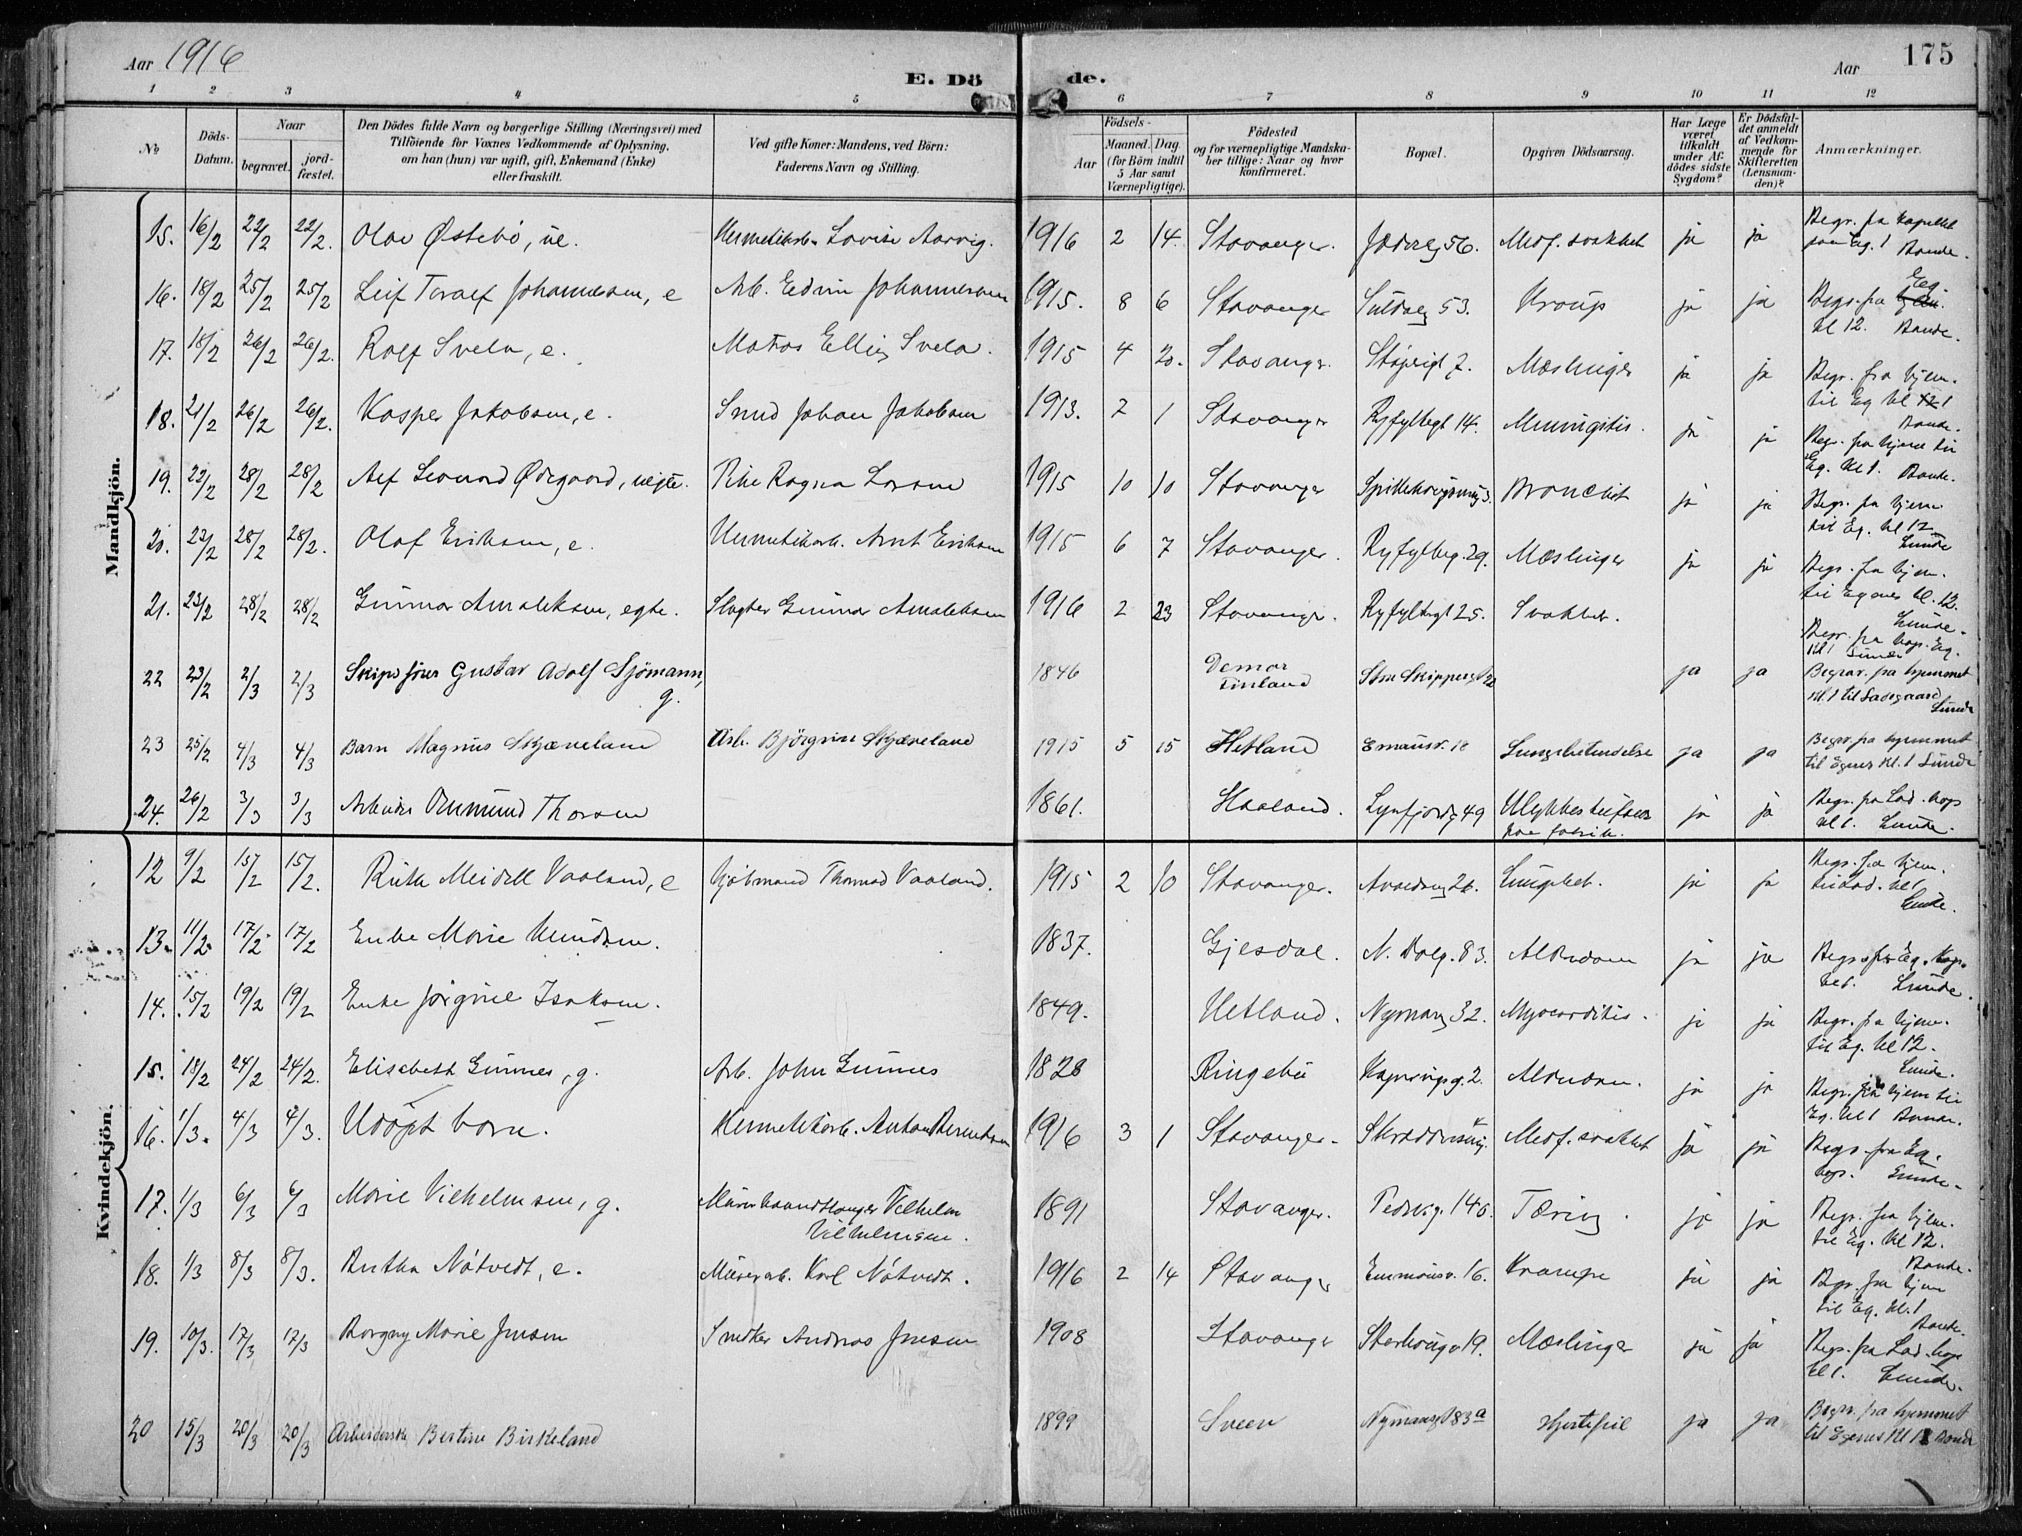 Aar 1916
E. Dö de.
Aar
175
1 2 3 4 5 6 7 8 9 10 11 12
No
Döds-Datum.
Naar
begravet.
jord-fæstet.
Den Dödes fulde Navn og borgerlige Stilling (Næringsvei) med
Tilföiende for Voxnes Vedkommende af Oplysning,
om han (hun) var ugift, gift, Enkemand (Enke)
eller fraskilt.
Ved gifte Koner: Mandens, ved Börn:
Faderens Navn og Stilling.
Födsels-
Aar
Maaned. Dag
(for Börn indtil
5 Aar samt
Værnepligtige).
Födested
og for værnepligtige Mandska-
ber tillige: Naar og hvor
konfirmeret.
Bopæl.
Opgiven Dödsaarsag.
Har Læge
været
tilkaldt
under Af-
dödes sidste
Sygdom?
Er Dödsfal-
det anmeldt
af Vedkom-
mende for
Skifteretten
(Lensman-
den)?
Anmærkninger.
Mandkjön.
15. 16/2 22/2 22/2. Olav Østebö, ue. Hermetikarb. Lovise Aarvig. 1916 2 14. Stavanger. 56. Medf. svakhet ja ja Begr. fra kapellet
paa Eg. 1 Bande.
16. 18/2 25/2 25/2 Leif Toralf Johannesen, e Arb. Edvin Johannesen 1915. 8 6 Stavanger Suldalg 53. Kroup ja ja Begr. fra Eg.
kl 12. Bande.
17. 18/2 26/2 26/2. Rolf Svela, e. Matros Svela. 1915 4 20. Stavanger. 7. Mæslinger ja ja Begr. fra hjem.
til Eg kl 1
Bande.
18. 21/2 26/2 26/2. Kasper Jakobsen, e. Smed Johan Jakobsen 1913. 2 1 Stavanger Ryfylkegt 14. Meningitis. ja ja Begr. fra hjem til
Eg. kl 1. Bande.
19. 22/2 28/2 28/2 Alf Leonard Ødegaard, uegte. Pike Ragna Larsen 1915 10 10 Stavanger Bronchit ja ja Begr. fra hjem
til Eg. kl 12
Lunde
20. 23/2 28/2 28/2. Olaf Eriksen, e. Hermetikarb. Arnt Eriksen 1915 6 7 Stavanger. Ryfylkeg. 29. Mæslinger ja ja Begr. fra hjem.
til Egenes kl. 12.
Lunde.
21. 23/2 28/2 28/2 Gunnar Amaleksen, egte. Slagter Gunnar Amaleksen 1916 2 23 Stavanger. Ryfylkegt 25. Svakhet. Begr. fra kap. Eg.
kl 1 Lunde
22 23/2 2/3 2/3 Skipsfører Gustav Adolf Sjömann,
g. 1846 Finland ja ja Begrav. fra hjemmet
kl. 1 til Ladegaard
Lunde
23 25/2 4/3 4/3 Barn Magnus Skjæveland Arb. Björgvin Skjæveland 1915 5 15 Hetland Emausv. 18 Lungebetendelse ja ja Begrav. fra hjemmet
til Egenes kl. 1 Lunde
24. 26/2 3/3 3/3 Arbeider Osmund Thorsen 1861. Haaland. Lysfjordg 49 Ulykkestilfælde
paa fabrik. ja ja Begr. fra Lad. kap
kl 1. Lunde.
Kvindekjön.
12 9/2 15/2 15/2. Ruth Meidell Vaaland, e Thomas Vaaland. 1915 2 10 Stavanger. 26. Lungebet. ja ja Begr. fra hjem.
til Lad. kl 1
Lunde.
13. 11/2 17/2 17/2 Enke Marie 1837. Gjesdal. N. Dalg. 83. Alderdom ja ja Begr. fra Eg. Kap.
kl 1. Lunde.
14. 15/2 19/2 19/2 Enke Jørgine Isaksen. 1849. Hetland. Nymansg 32. Myocarditis. ja ja Begr. fra hjem.
til Eg. kl 12.
Lunde.
15. 18/2 24/2 24/2. Elisabeth Gunnes, g. Arb. John Gunnes 1828 Ringebu 2. Alderdom. ja ja Begr. fra hjem til
Eg. kl 1 Bande.
16. 1/3. 4/3 4/3. Udöpt barn. Hermetikarb. Anton Berntsen 1916 3 1 Stavanger. Medf. svakhet ja ja Begr. fra Eg.
kap. Lunde.
17. 1/3 6/3 6/3 Marie Vilhelmsen, g. Murerhaandlanger Vilhelm
Vilhelmsen. 1891 Stavanger. Pedersg. 145. Tæring. ja ja Begr. fra hjem.
til Eg. kl 12.
Bande.
18. 1/3 8/3 8/3. Bertha Nötvedt, e. Murerarb. Karl Nötvedt. 1916 2 14 Stavanger Emmausv. 16. Krampe ja ja Begr. fra hjem
til Eg. kl. 1
Bande.
19. 10/3. 17/3 17/3 Borgny Marie Jensen Snedker Andreas Jensen 1908 Stavanger 19. Mæslinger ja ja Begr. fra Lad. kap
kl 1. Lunde.
20 15/3 20/3 20/3 Arbeiderske Bertine Birkeland 1899 Sveen Nymansgt 83a Hjertefeil ja ja Begrv. fra hjemmet
til Egenes kl 1 Bande